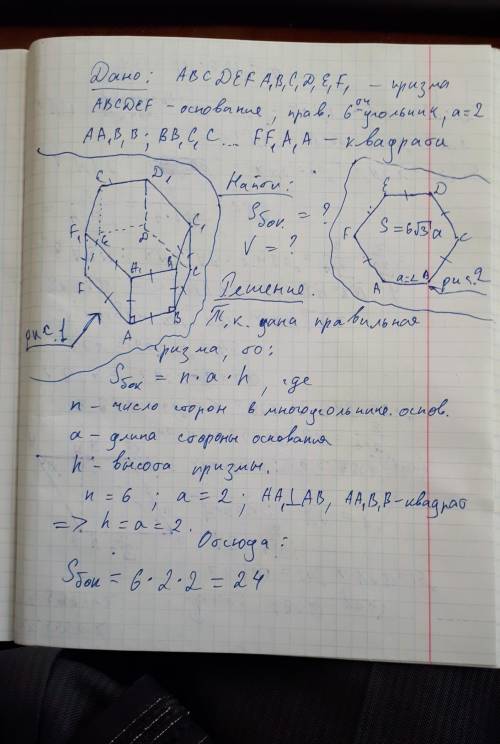 Дано: ABCDEFA₁B₁C₁D₁E₁F₁ – призма
ABCDEF – основание, прав. 6-ти угольник, a=2
AA₁B₁B; BB₁C₁C ... FF₁A₁A – квадраты
Найти:
Sбок. = ?
V = ?
E₁
D₁
F₁
E
D
C₁
A₁
B₁
C
F
B
A
рис. 1
E
D
F
S=6√3a
C
A
a=2
B
рис. 2
Решение.
Т.к. дана правильная
призма, то:
Sбок = n·a·h, где
n – число сторон в многоугольнике основ.
a – длина стороны основания
h – высота призмы.
n = 6; a = 2; AA₁⊥AB, AA₁B₁B – квадрат
=> h = a = 2.
Отсюда:
Sбок = 6·2·2 = 24